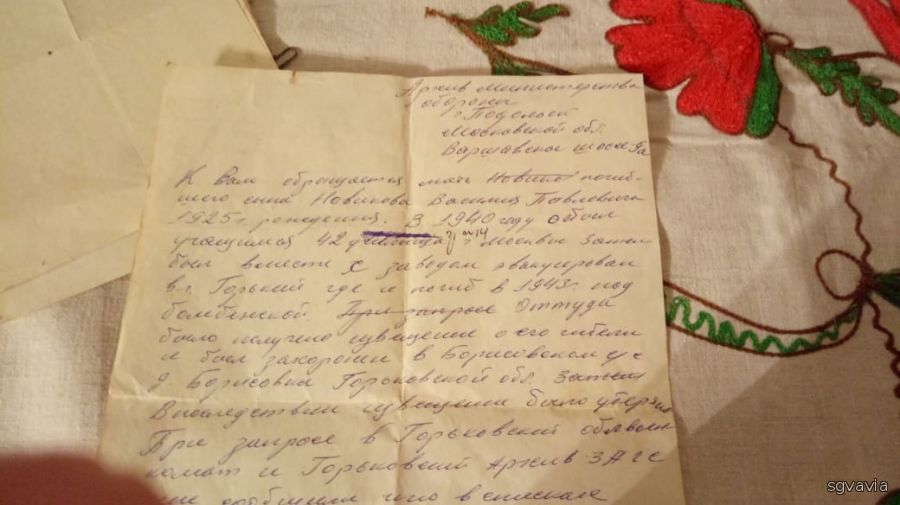 Архив Министерства
обороны
г Подольск
Московской обл.
Варшавское шоссе 9а
К Вам обращается мать погиб-
шего сына Новикова Василия Павловича
1925 г. рождения. В 1940 году был
учащимся 42 училища г Москвы Затем
был вместе с заводом эвакуирован
в г. Горький где и погиб в 1943 г. под
бомбежкой. При запросе Оттуда
было получено извещение о его гибели
и был захоронен в Борисовском с/с
д Борисовка Горьковской обл. Затем
Впоследствии извещение было утеряно
При запросе в Горьковский облвоен
комат и Горьковский Архив ЗАГС
сообщили что в списках
sgvavia